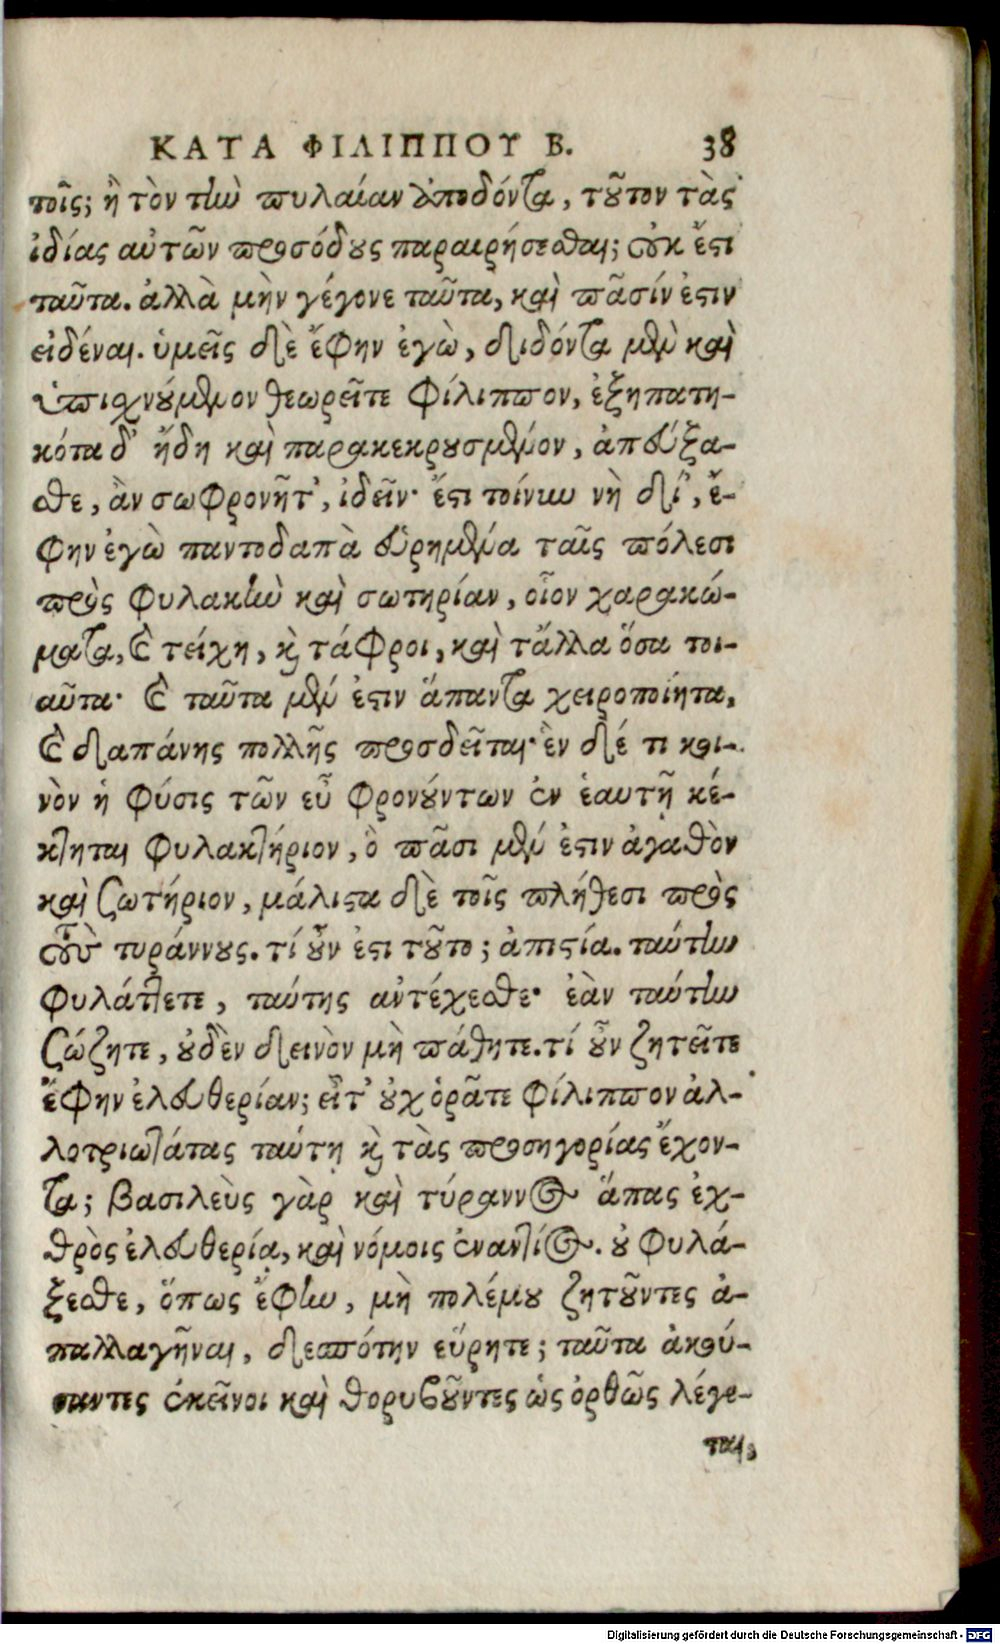 ΚΑΤΑ ΦΙΛΙΠΠΟΥ Β. 38
τοῖς; ἢ τὸν τὴν πυλαίαν ἀποδόντα, τοῦτον τὰς
ἰδίας αὐτῶν προσόδους παραιρήσεσθαι; οὐκ ἔστι
ταῦτα. ἀλλὰ μὴν γέγονε ταῦτα, καὶ πᾶσίν ἐστιν
εἰδέναι. ὑμεῖς δὲ ἔφην ἐγὼ, διδόντα μὲν καὶ
ὑπισχνούμενον θεωρεῖτε Φίλιππον, ἐξηπατη-
κότα δ' ἤδη καὶ παρακεκρουσμένον, ἀπεύξα-
σθε, ἂν σωφρονῆτ', ἰδεῖν· ἔστι τοίνυν νὴ δί', ἔ-
φην ἐγὼ παντοδαπὰ εὑρημένα ταῖς πόλεσι
πρὸς φυλακὴν καὶ σωτηρίαν, οἷον χαρακώ-
ματα, καὶ τείχη, καὶ τάφροι, καὶ τἄλλα ὅσα τοι-
αῦτα· καὶ ταῦτα μέν ἐστιν ἅπαντα χειροποίητα,
καὶ δαπάνης πολλῆς προσδεῖται· ἓν δέ τι κοι-
νὸν ἡ φύσις τῶν εὖ φρονούντων ἐν ἑαυτῇ κέ-
κτηται φυλακτήριον, ὃ πᾶσι μέν ἐστιν ἀγαθὸν
καὶ σωτήριον, μάλιστα δὲ τοῖς πλήθεσι πρὸς
τοὺς τυράννους. τί οὖν ἐστι τοῦτο; ἀπιστία. ταύτην
φυλάττετε, ταύτης ἀντέχεσθε· ἐὰν ταύτην
σώζητε, οὐδὲν δεινὸν μὴ πάθητε. τί οὖν ζητεῖτε
ἔφην ἐλευθερίαν; εἶτ' οὐχ ὁρᾶτε Φίλιππον ἀλ-
λοτριωτάτας ταύτῃ καὶ τὰς προσηγορίας ἔχον-
τα; βασιλεὺς γὰρ καὶ τύραννος ἅπας ἐχ-
θρὸς ἐλευθερίᾳ, καὶ νόμοις ἐναντίος. οὐ φυλά-
ξεσθε, ὅπως ἔφην, μὴ πολέμου ζητοῦντες ἀ-
παλλαγῆναι, δεσπότην εὕρητε; ταῦτα ἀκού-
σαντες ἐκεῖνοι καὶ θορυβοῦντες ὡς ὀρθῶς λέγε-
ται,
Digitalisierung gefördert durch die Deutsche Forschungsgemeinschaft - DFG